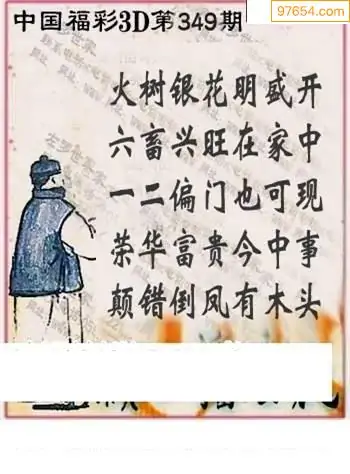 中国福彩3D第349期
97654.com
火树银花明盛开
六畜兴旺在家中
一二偏门也可现
荣华富贵今中事
颠错倒凤有木头